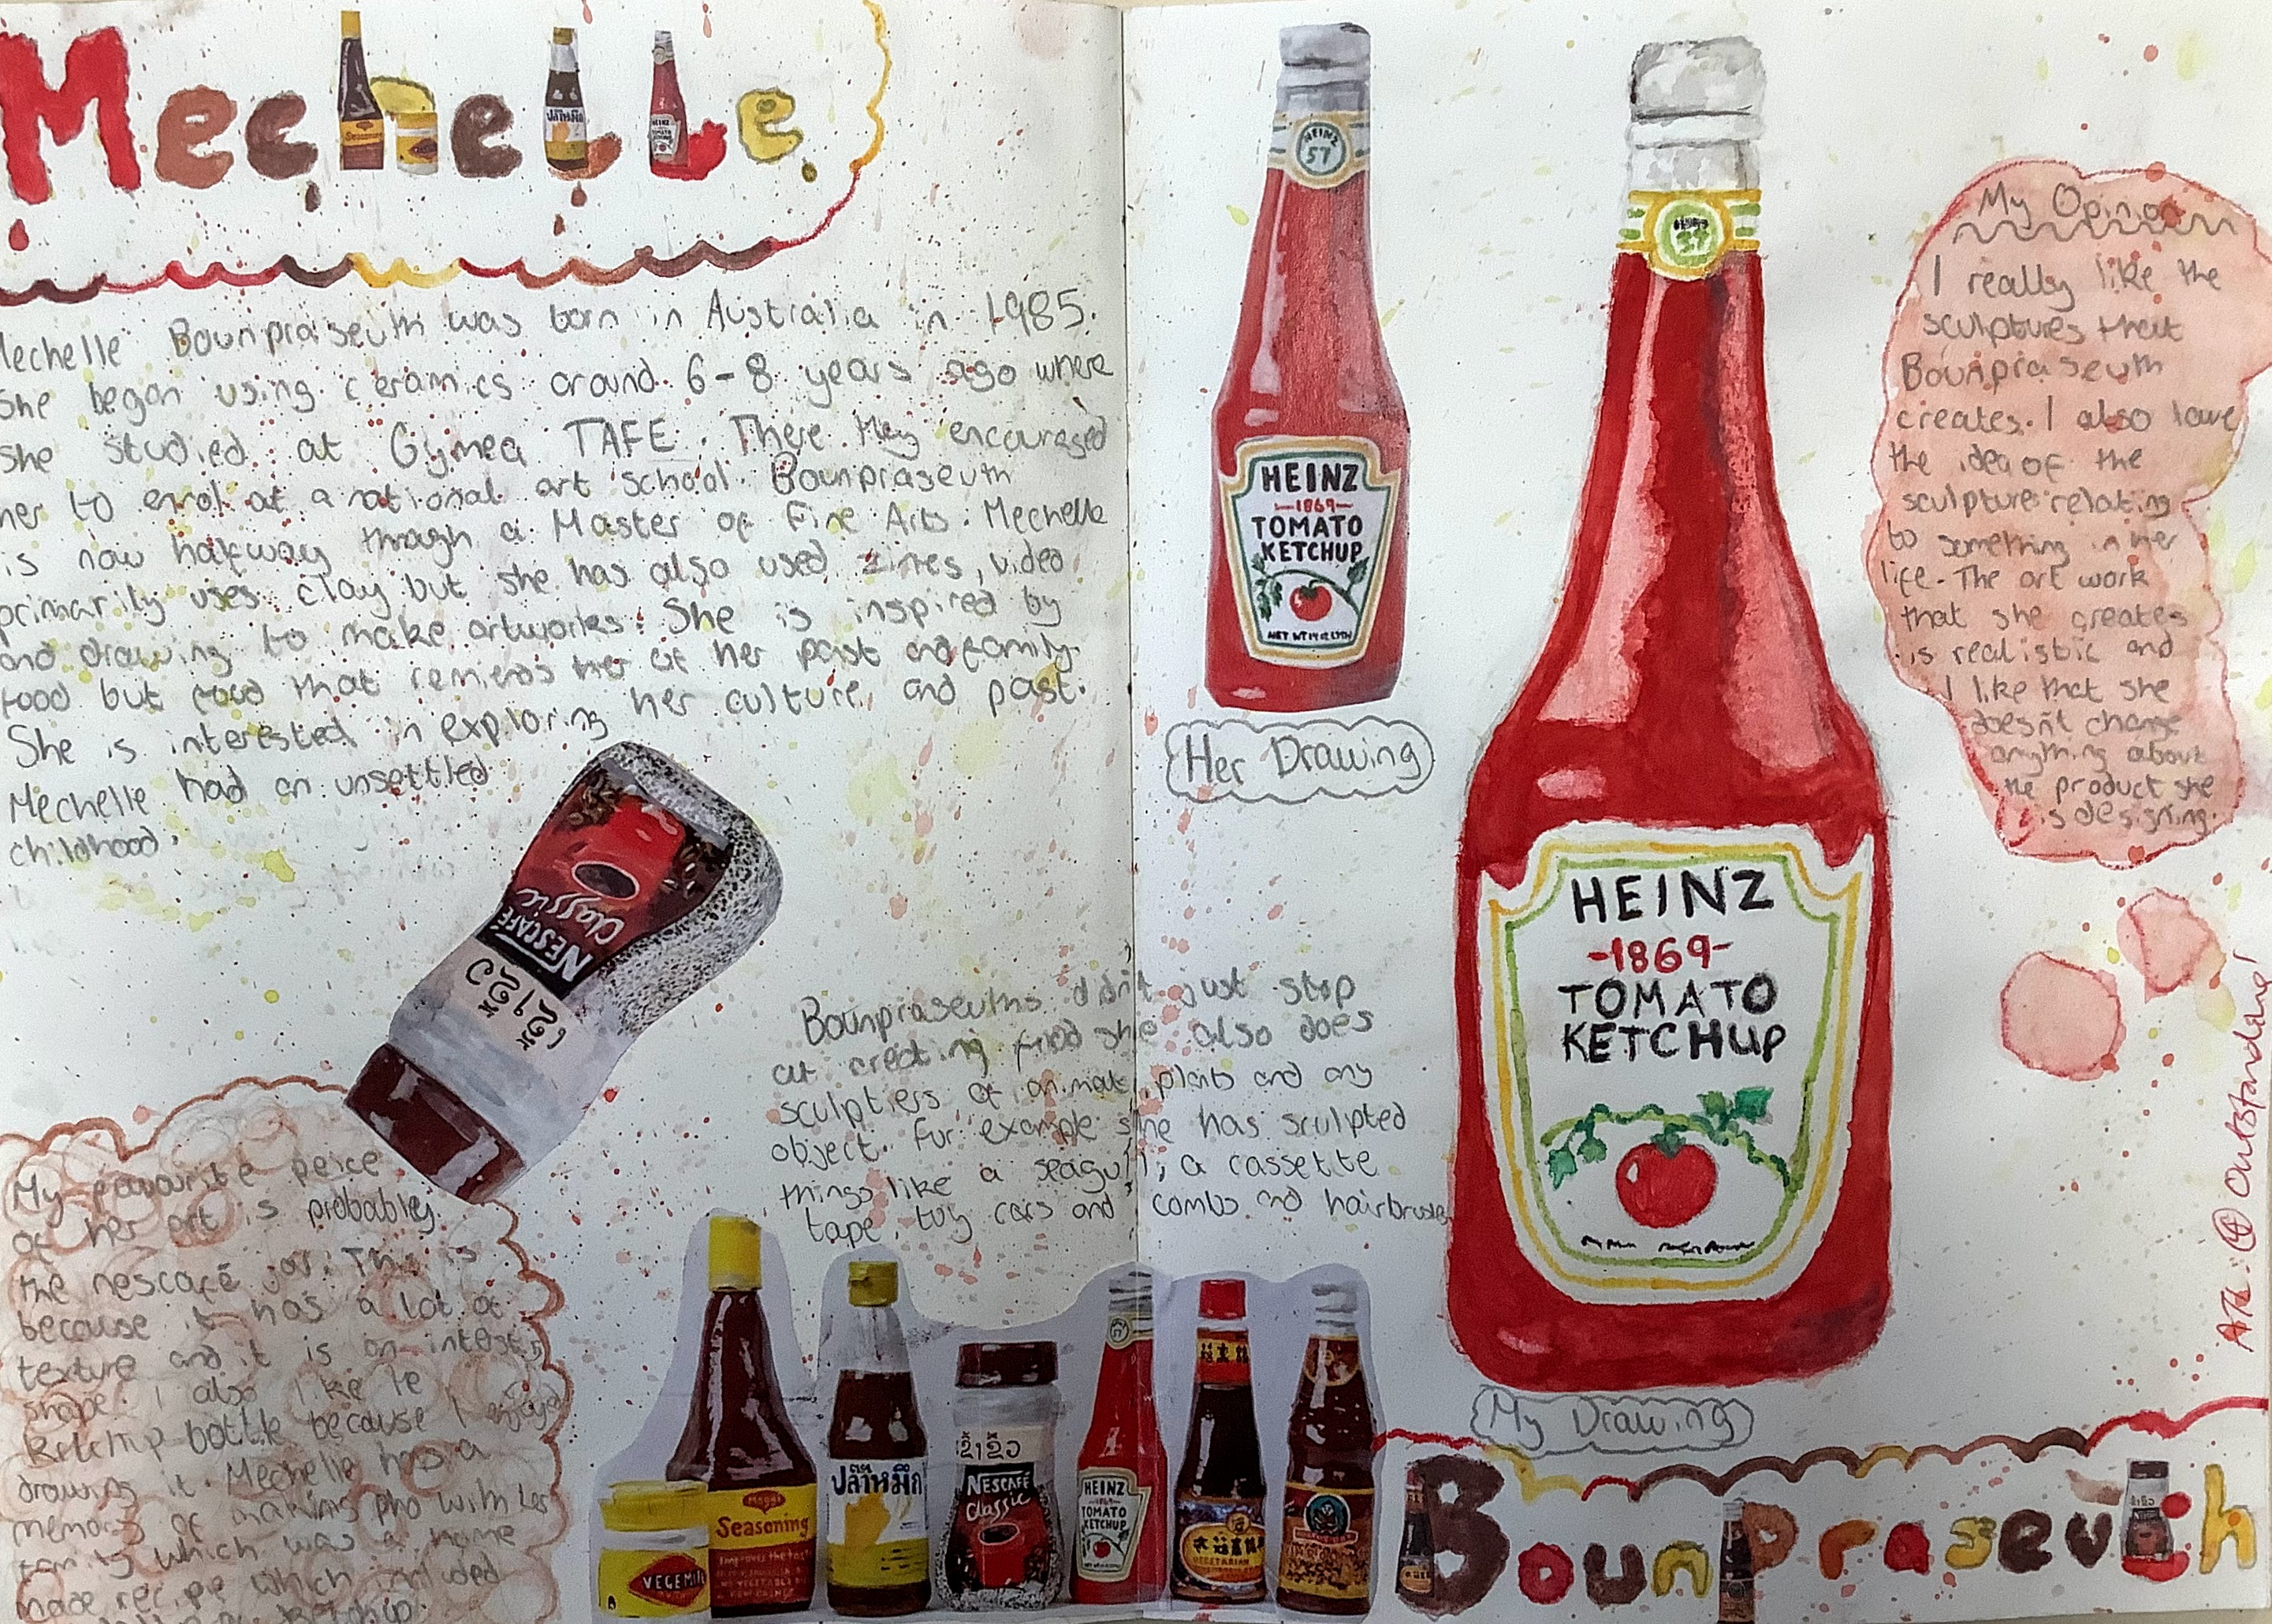 Mechelle
Mechelle Bounpraseuth was born in Australia in 1985.
She began using ceramics around 6-8 years ago where
she studied at Gymea TAFE. There they encouraged
her to enrol at a national art school. Bounpraseuth
is now halfway through a Master of Fine Arts. Mechelle
primarily uses clay but she has also used zines, video
and drawing to make artworks. She is inspired by
food but food that reminds her of her past and family.
She is interested in exploring her culture, and past.
Mechelle had an unsettled
childhood.
NESCAFÉ
Classic
My favourite peice
of her art is probably
the nescafé jar. This is
because it has a lot of
texture and it is an
shape. I also like
ketchup bottle because I enjoyed
drawing it. Mechelle has a
memory of making pho with her
family which was a home
made recipe which included
ketchup.
Bounpraseuths didn't just stop
at creating food she also does
sculptiers of animals, plants and any
object. For example she has sculpted
things like a seagull, a cassette
tape, toy cars and combs and hairbrushes
VEGEMITE
Maggi
Seasoning
ปลาหมึก
NESCAFÉ
Classic
HEINZ
1869
TOMATO
KETCHUP
VEGETARIAN
HEINZ
57
HEINZ
-1869-
TOMATO
KETCHUP
Her Drawing
57
HEINZ
-1869-
TOMATO
KETCHUP
My Drawing
My Opinion
I really like the
sculptures that
Bounpraseuth
creates. I also love
the idea of the
sculpture relating
to something in her
life. The art work
that she creates
is realistic and
I like that she
doesn't change
anything about
the product she
is designing.
ATL: 4 Outstanding!
Bounpraseuth